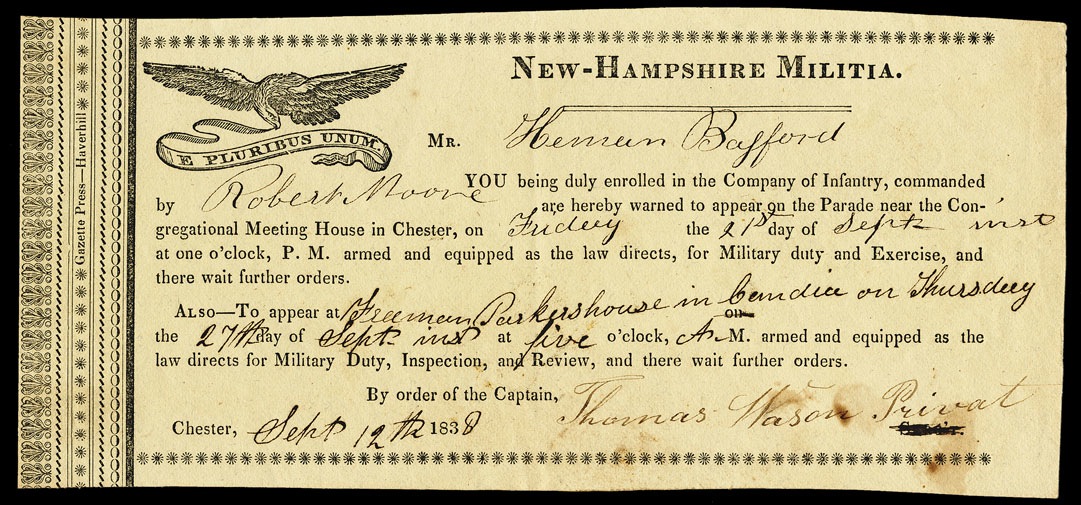 NEW-HAMPSHIRE MILITIA.
E PLURIBUS UNUM.
Gazette Press—Haverhill
MR. Heman Bafford
YOU being duly enrolled in the Company of Infantry, commanded
by Robert Moore are hereby warned to appear on the Parade near the Con-
gregational Meeting House in Chester, on Friday the 21st day of Sept inst
at one o'clock, P. M. armed and equipped as the law directs, for Military duty and Exercise, and
there wait further orders.
ALSO—To appear at Freeman Parkers house in Candia on Thursday
on
the 27th day of Sept inst at five o'clock, A. M. armed and equipped as the
law directs for Military Duty, Inspection, and Review, and there wait further orders.
By order of the Captain,
Thomas Wason Privat
Chester, Sept 12th 1838